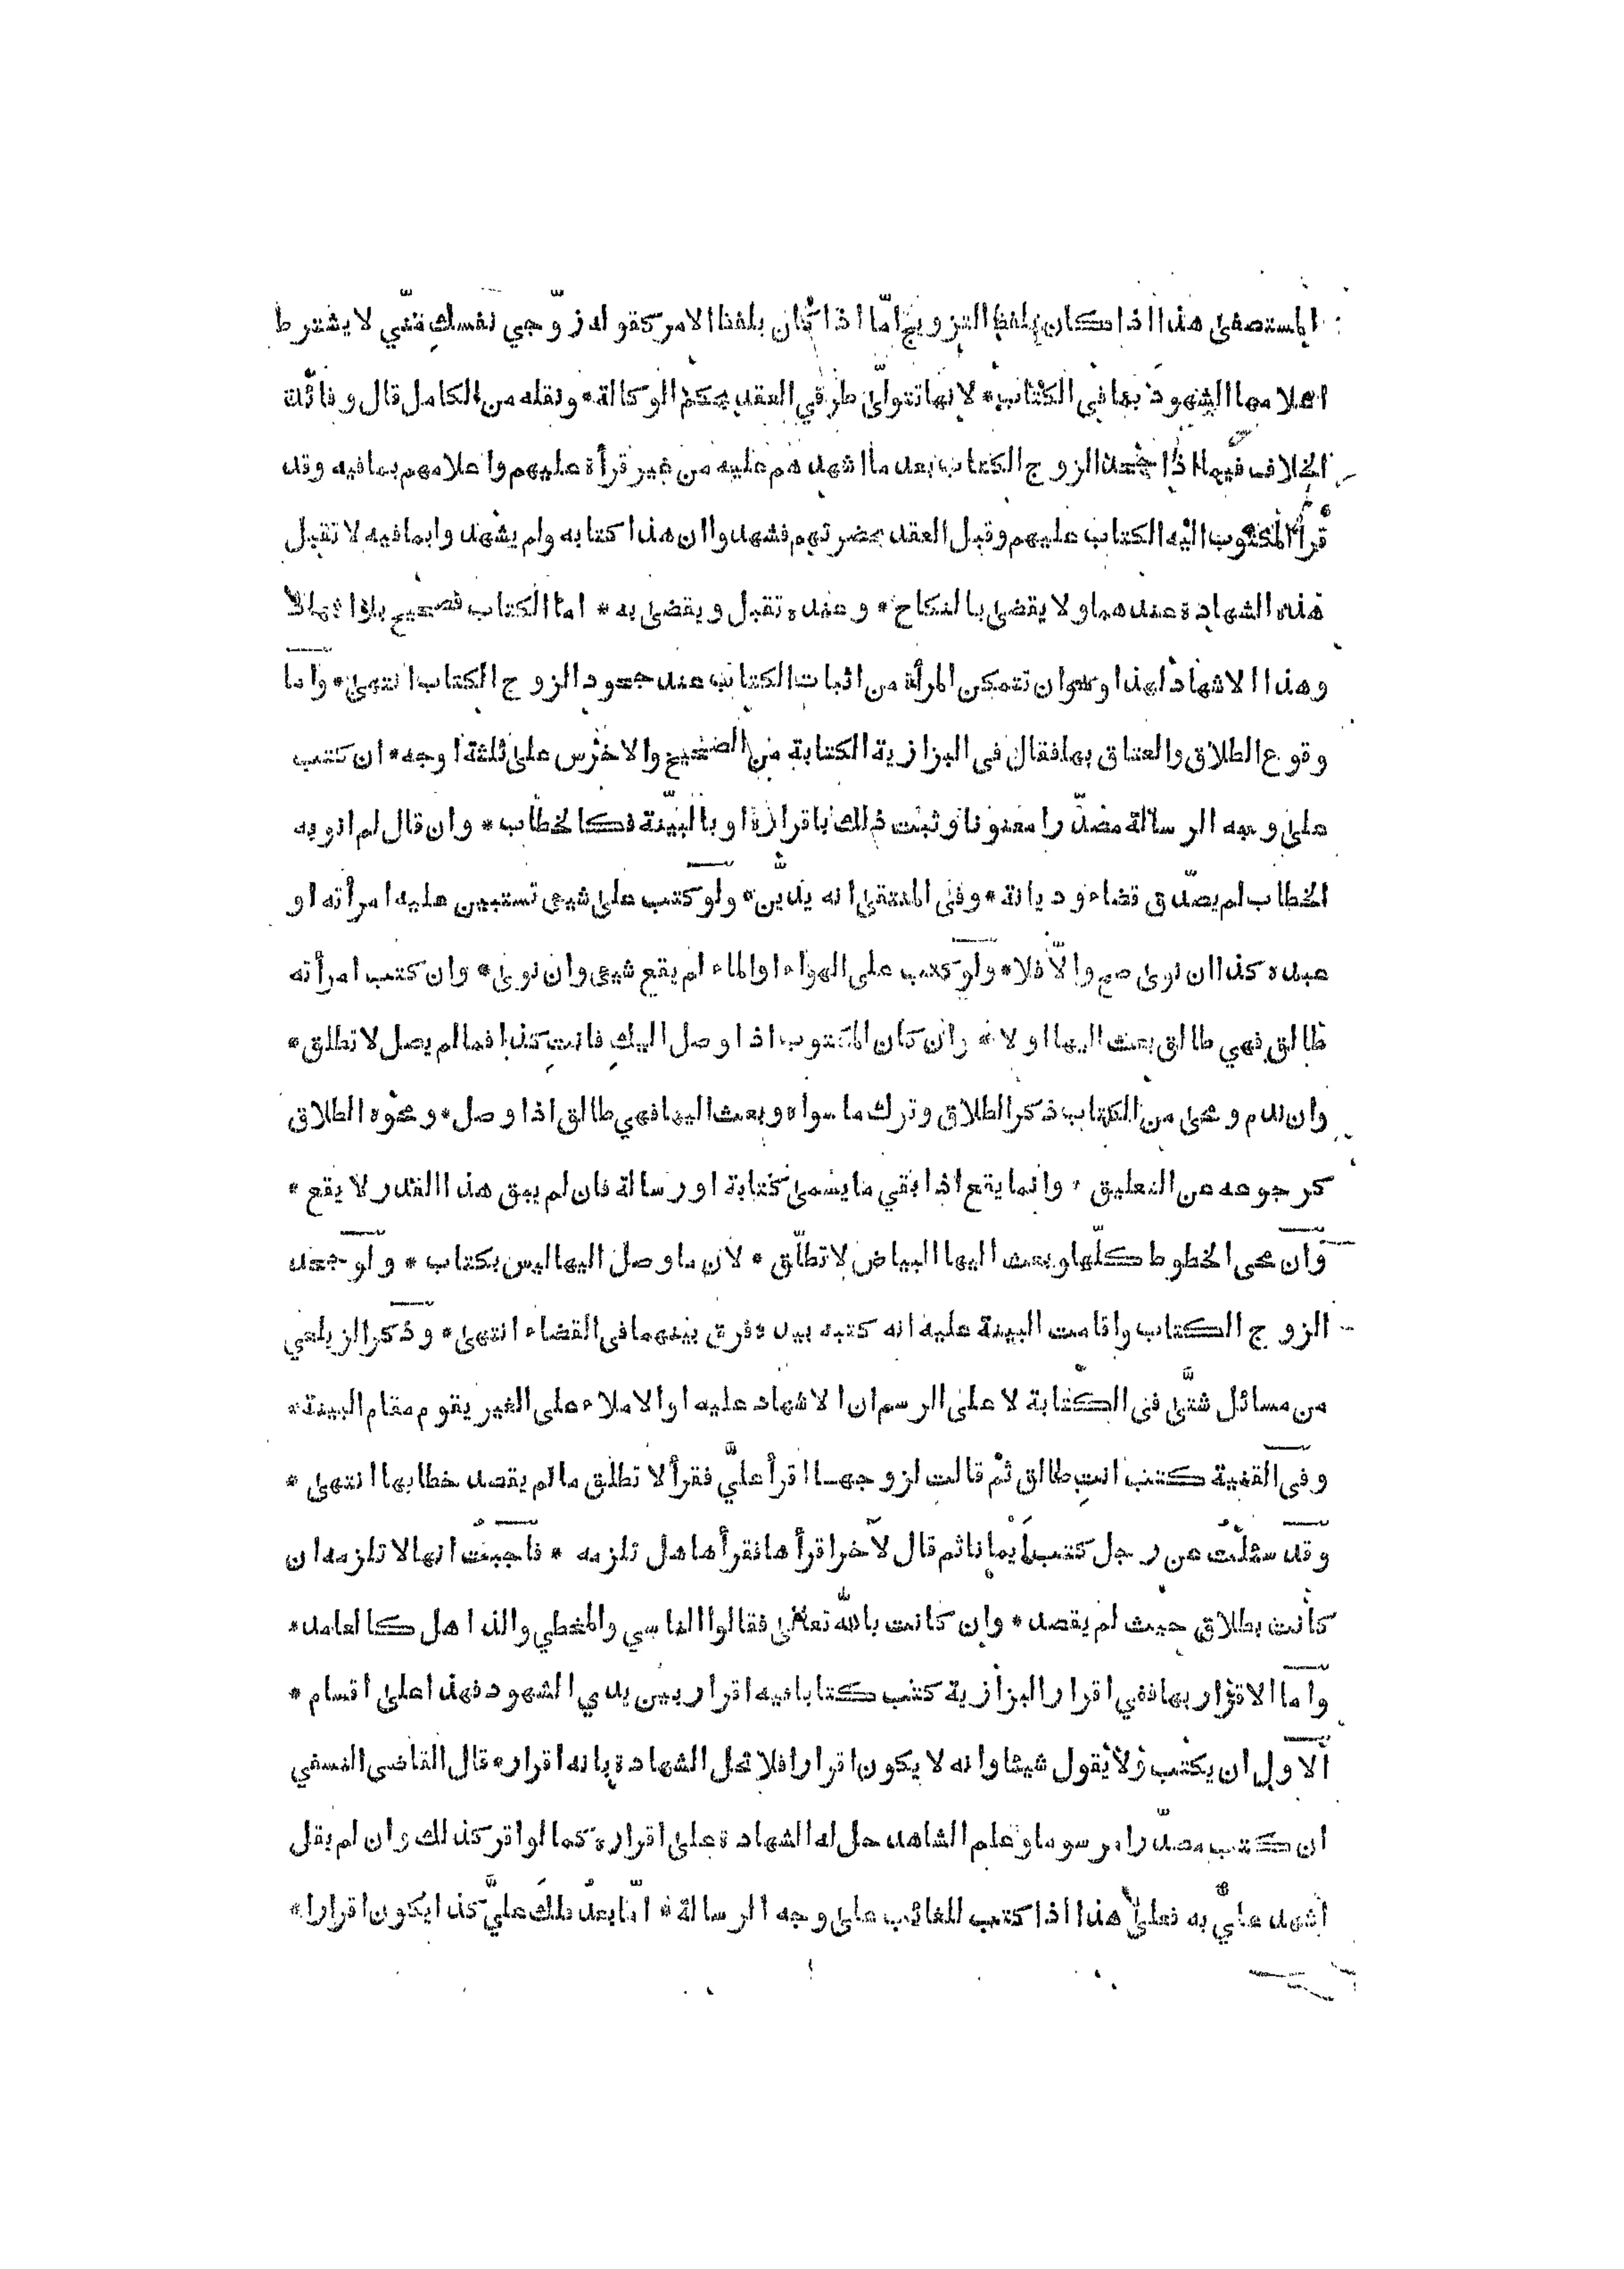 المستصفى هذا اذا كان بلفظ التزويج امّا اذا كان بلفظ الامر كقوله زوّجي نفسك منّي لا يشترط
اعلامها الشهود بما في الكتاب * لانها تتولّى طرفي العقد بحكم الوكالة * ونقله من الكامل قال وفائدة
الخلاف فيما اذا جحد الزوج الكتاب بعد ما اشهدهم عليه من غير قرأة عليهم واعلامهم بما فيه وقد
قرأ المكتوب اليه الكتاب عليهم وقبل العقد بحضرتهم فشهدوا ان هذا كتابه ولم يشهدوا بما فيه لا تقبل
هذه الشهادة عندهما ولا يقضى بالنكاح * وعنده تقبل ويقضى به * اما الكتاب فصحيح بلا اشهاد
وهذا الاشهاد لهذا وهو ان تتمكن المرأة من اثبات الكتاب عند جحود الزوج الكتاب انتهى * واما
وقوع الطلاق والعتاق بها فقال فى البزازية الكتابة من الصحيح والاخرس على ثلثة اوجه * ان كتب
على وجه الرسالة مصدّرا معنونا وثبت ذلك باقراره او بالبيّنة فكالخطاب * وان قال لم انو به
الخطاب لم يصدّق قضاء وديانة * وفى المنتقى انه يديّن * ولو كتب على شيئ تستبين عليه امرأته او
عبده كذا ان نوى صح والّا فلا * ولو كتب على الهواء او الماء لم يقع شيئ وان نوى * وان كتب امرأته
طالق فهي طالق بعث اليها اولا * وان كان المكتوب اذا وصل اليكِ فانتِ كذا فما لم يصل لا تطلق *
وان ندم ومحى من الكتاب ذكر الطلاق وترك ما سواه وبعث اليها فهي طالق اذا وصل * ومحوه الطلاق
كرجوعه عن التعليق * وانما يقع اذا بقي ما يسمى كتابة او رسالة فان لم يبق هذا القدر لا يقع *
وان محى الخطوط كلّها وبعث اليها البياض لا تطلّق * لان ما وصل اليها ليس بكتاب * ولو جحد
الزوج الكتاب واقامت البينة عليه انه كتبه بيده فرق بينهما فى القضاء انتهى * وذكر الزيلعي
من مسائل شتّى فى الكتابة لا على الرسم ان الاشهاد عليه او الاملاء على الغير يقوم مقام البينة *
وفى القنية كتبت انتِ طالق ثم قالت لزوجها اقرأ عليّ فقرأ لا تطلق ما لم يقصد خطابها انتهى *
وقد سئلت عن رجل كتب ايمانا ثم قال لآخر اقرأها فقرأها هل تلزمه * فاجبت انها لا تلزمه ان
كانت بطلاق حيث لم يقصد * وان كانت بالله تعالى فقالوا الناسي والمخطي والذاهل كالعامد *
واما الاقرار بها ففي اقرار البزازية كتب كتابا فيه اقرار بين يدي الشهود فهذا على اقسام *
الاول ان يكتب ولا يقول شيئا وانه لا يكون اقرارا فلا تحل الشهادة بانه اقرار * قال القاضى النسفي
ان كتب مصدّرا مرسوما وعلم الشاهد حل له الشهادة على اقراره كما لو اقر كذلك وان لم يقل
اشهد عليّ به فعلى هذا اذا كتب للغائب على وجه الرسالة * امّا بعدُ فلك عليّ كذا يكون اقرارا *